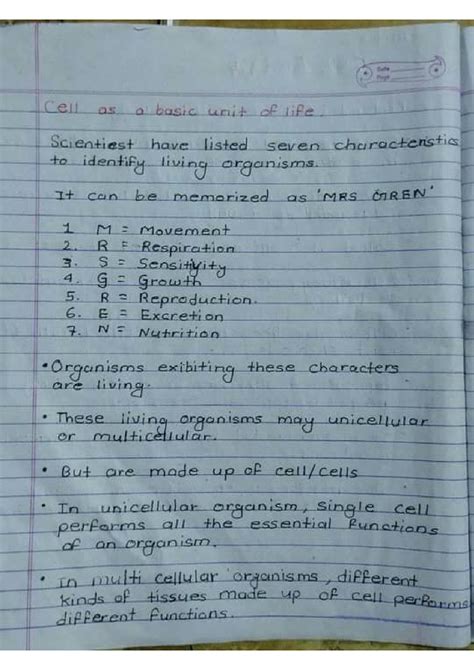 Date
Page
Cell as a basic unit of life.
Scientiest have listed seven characteristics
to identify living organisms.
It can be memorized as 'MRS GREN'
1 M = Movement
2. R = Respiration
3. S = Sensitivity
4. G = Growth
5. R = Reproduction.
6. E = Excretion
7. N = Nutrition
• Organisms exibiting these characters
are living.
• These living organisms may unicellular
or multicellular.
• But are made up of cell/cells
• In unicellular organism, single cell
performs all the essential functions
of an organism.
• In multi cellular organisms, different
kinds of tissues made up of cell performs
different functions.